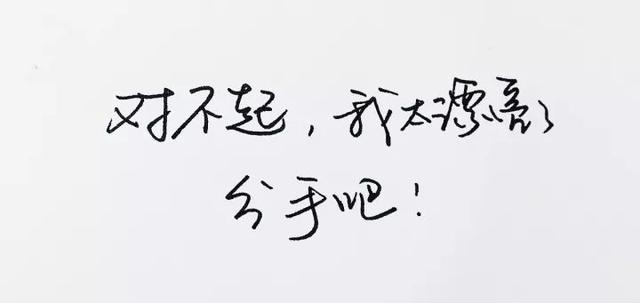 对不起，我太漂亮了
分手吧！